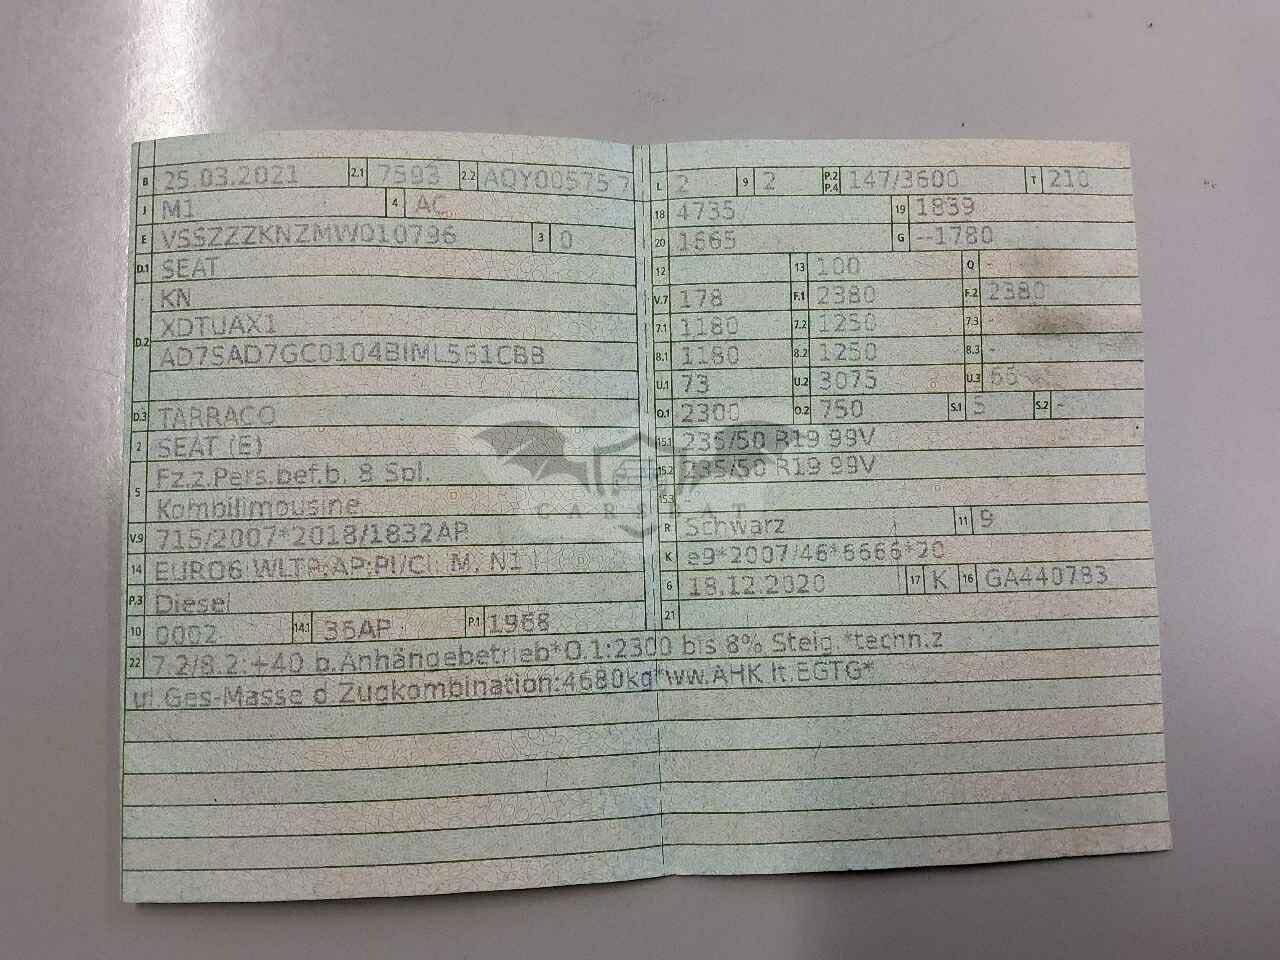 B 25.03.2021 2.1 7593 2.2 AQY00575 7
J M1 4 AC
E VSSZZZKNZMW010796 3 0
D.1 SEAT
KN
D.2 XDTUAX1
AD7SAD7GC0104BIML561CBB
D.3 TARRACO
2 SEAT (E)
5 Fz.z.Pers.bef.b. 8 Spl.
Kombilimousine
V.9 715/2007*2018/1832AP
14 EURO6 WLTP,AP:PI/CI; M, N1 I
P.3 Diesel
10 0002 14.1 36AP P.1 1968
22 7.2/8.2:+40 b.Anhängebetrieb*O.1:2300 bis 8% Steig.*techn.z
ul.Ges-Masse d.Zugkombination:4680kg*ww.AHK lt.EGTG*
L 2 9 2 P.2 P.4 147/3600 T 210
18 4735 19 1839
20 1665 G --1780
12 13 100 Q -
V.7 178 F.1 2380 F.2 2380
7.1 1180 7.2 1250 7.3 -
8.1 1180 8.2 1250 8.3 -
U.1 73 U.2 3075 U.3 66
O.1 2300 O.2 750 S.1 5 S.2 -
15.1 235/50 R19 99V
15.2 235/50 R19 99V
15.3
R Schwarz 11 9
K e9*2007/46*6666*20
6 18.12.2020 17 K 16 GA440783
21
CARSBAT